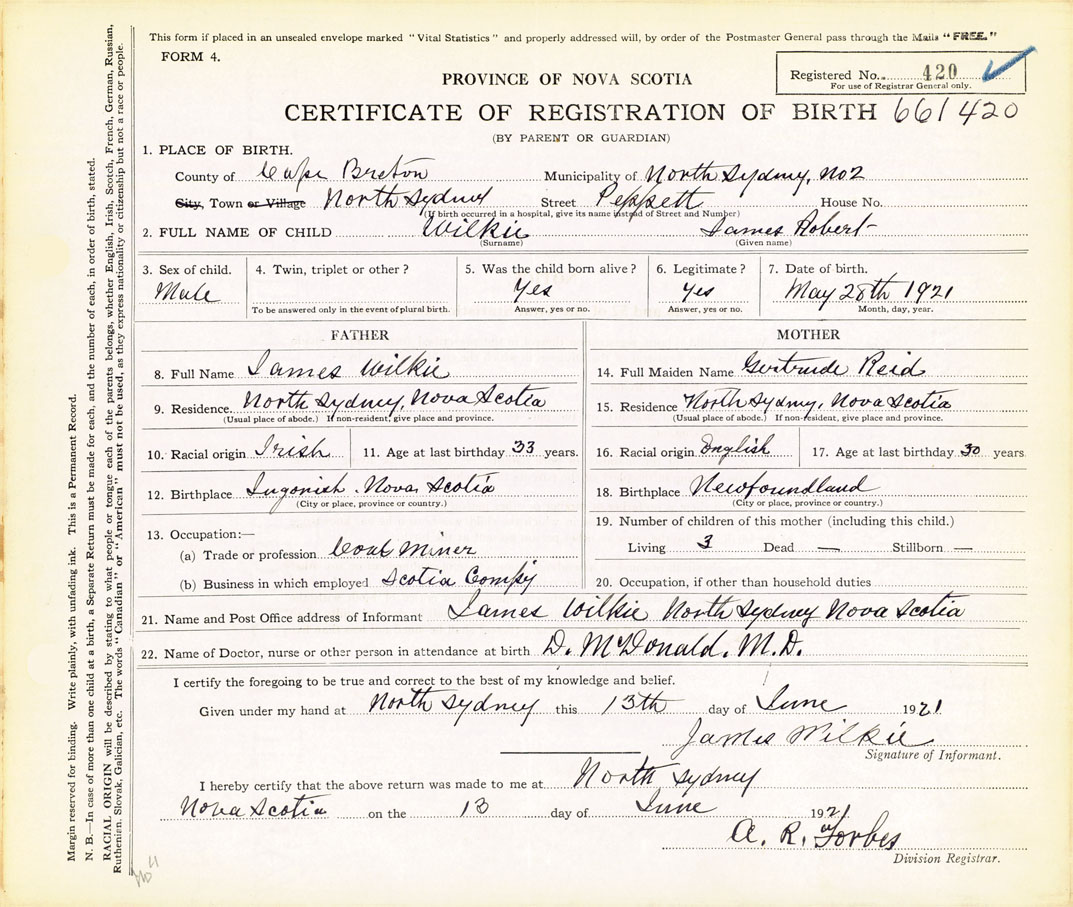 This form if placed in an unsealed envelope marked "Vital Statistics" and properly addressed will, by order of the Postmaster General pass through the Mails "FREE."
FORM 4.
Registered No. 420
For use of Registrar General only.
PROVINCE OF NOVA SCOTIA
CERTIFICATE OF REGISTRATION OF BIRTH 661420
(BY PARENT OR GUARDIAN)
1. PLACE OF BIRTH.
County of Cape Breton Municipality of North Sydney, No 2
City, Town or Village North Sydney Street Peppett House No.
(If birth occurred in a hospital, give its name instead of Street and Number)
2. FULL NAME OF CHILD Wilkie James Robert
(Surname) (Given name)
3. Sex of child. 4. Twin, triplet or other? 5. Was the child born alive? 6. Legitimate? 7. Date of birth.
Male Yes Yes May 28th 1921
To be answered only in the event of plural birth. Answer, yes or no. Answer, yes or no. Month, day, year.
FATHER
8. Full Name James Wilkie
9. Residence. North Sydney, Nova Scotia
(Usual place of abode.) If non-resident, give place and province.
10. Racial origin Irish 11. Age at last birthday 33 years.
12. Birthplace Ingonish. Nova Scotia
(City or place, province or country.)
13. Occupation:—
(a) Trade or profession Coal Miner
(b) Business in which employed Scotia Compy
MOTHER
14. Full Maiden Name Gertrude Reid
15. Residence North Sydney, Nova Scotia
(Usual place of abode.) If non-resident, give place and province.
16. Racial origin English 17. Age at last birthday 30 years
18. Birthplace Newfoundland
(City or place, province or country.)
19. Number of children of this mother (including this child.)
Living 3 Dead — Stillborn —
20. Occupation, if other than household duties
21. Name and Post Office address of Informant James Wilkie North Sydney Nova Scotia
22. Name of Doctor, nurse or other person in attendance at birth D. McDonald. M.D.
I certify the foregoing to be true and correct to the best of my knowledge and belief.
Given under my hand at North Sydney this 13th day of June 1921
James Wilkie
Signature of Informant.
I hereby certify that the above return was made to me at North Sydney
Nova Scotia on the 13 day of June 1921
A. R. Forbes
Division Registrar.
Margin reserved for binding. Write plainly, with unfading ink. This is a Permanent Record.
N. B.—In case of more than one child at a birth, a Separate Return must be made for each, and the number of each, in order of birth, stated.
RACIAL ORIGIN will be described by stating to what people or tongue each of the parents belongs, whether English, Irish, Scotch, French, German, Russian,
Ruthenian, Slovak, Galician, etc. The words "Canadian" or "American" must not be used, as they express nationality or citizenship but not a race or people.